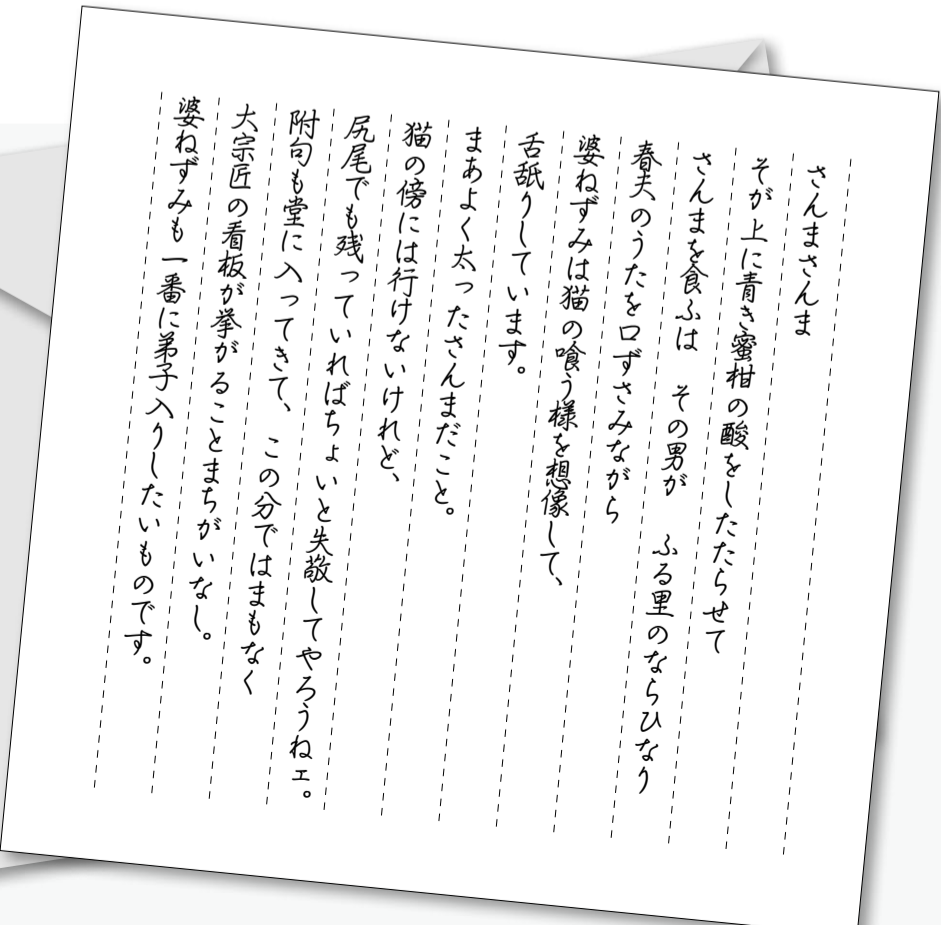 さんまさんま
そが上に青き蜜柑の酸をしたたらせて
さんまを食ふは　その男が　ふる里のならひなり
春夫のうたを口ずさみながら
婆ねずみは猫の喰う様を想像して、
舌舐りしています。
まあよく太ったさんまだこと。
猫の傍には行けないけれど、
尻尾でも残っていればちょいと失敬してやろうねェ。
附句も堂に入ってきて、この分ではまもなく
大宗匠の看板が挙がることまちがいなし。
婆ねずみも一番に弟子入りしたいものです。